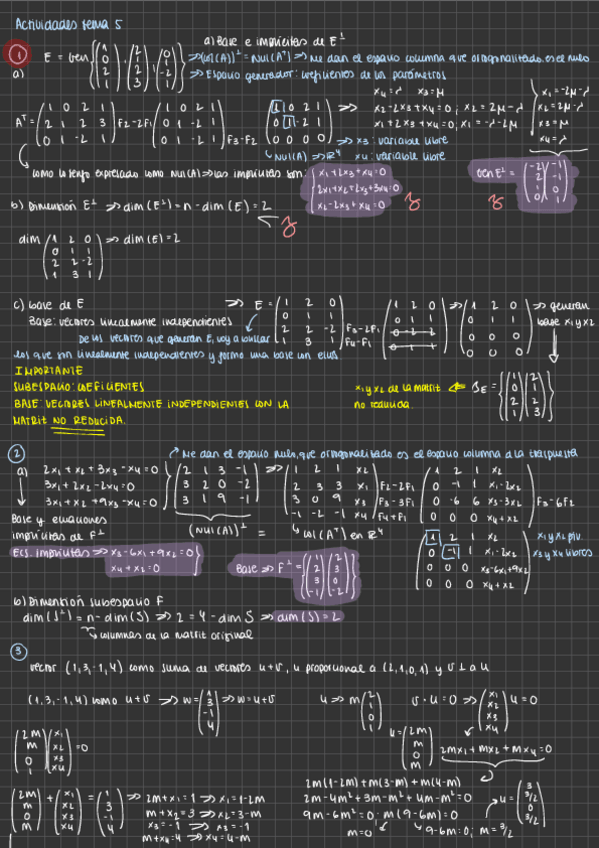 Actividades tema 5
a) Base e implícitas de E⊥
① a) E = Gen {(1 0 2 1), (2 1 2 3), (0 1 -2 1)} => (col(A))⊥ = Nul(Aᵀ) => Me dan el espacio columna que ortogonalitado es el nulo
=> Espacio generador: coeficientes de los parámetros
Aᵀ = (1 0 2 1 / 2 1 2 3 / 0 1 -2 1) F2-2F1 (1 0 2 1 / 0 1 -2 1 / 0 1 -2 1) F3-F2 (1 0 2 1 / 0 1 -2 1 / 0 0 0 0) =>
x4=λ x3=μ
x2-2x3+x4=0; x2=2μ-λ
x1+2x3+x4=0; x1=-λ-2μ
x1=-2μ-λ
x2=2μ-λ
x3=μ
x4=λ
=> x3: variable libre
Nul(A) => ℝ⁴ x4: variable libre
como lo tengo expresado como Nul(A) => las implícitas son: {x1+2x3+x4=0
2x1+x2+2x3+3x4=0
x2-2x3+x4=0
Gen E⊥ = {(-2 2 1 0), (-1 -1 0 1)}
b) Dimensión E⊥ => dim(E⊥) = n - dim(E) = 2
dim (1 2 0 / 0 1 1 / 2 2 -2 / 1 3 1) => dim(E) = 2
c) base de E => E = (1 2 0 / 0 1 1 / 2 2 -2 / 1 3 1) F3-2F1 F4-F1 => (1 2 0 / 0 1 1 / 0 0 0 / 0 0 0) => generan base x1 y x2
Base: vectores linealmente independientes
De los vectores que generan E, voy a buscar
los que son linealmente independientes y formo una base con ellos
IMPORTANTE
SUBESPACIO: COEFICIENTES
BASE: VECTORES LINEALMENTE INDEPENDIENTES CON LA
MATRIT NO REDUCIDA.
x1 y x2 de la matrit no reducida. <= BE = {(1 0 2 1), (2 1 2 3)}
② => Me dan el espacio nulo, que ortogonalitado es el espacio columna a la traspuesta
a) 2x1+x2+3x3-x4=0
3x1+2x2-2x4=0
3x1+x2+9x3-x4=0
(2 1 3 -1 / 3 2 0 -2 / 3 1 9 -1) => (1 2 1 x2 / 2 3 3 x1 / 3 0 9 x3 / -1 -2 -1 x4) F2-2F1 F3-3F1 F4+F1
(1 2 1 x2 / 0 -1 1 x1-2x2 / 0 -6 6 x3-3x2 / 0 0 0 x4+x2) F3-6F2
Base y ecuaciones
implícitas de F⊥
(Nul(A))⊥ = col(Aᵀ) en ℝ⁴
(1 2 1 x2 / 0 -1 1 x1-2x2 / 0 0 0 x3-6x1+9x2 / 0 0 0 x4+x2) x1 y x2 piv. x3 y x4 libres
Ecs. implícitas => x3-6x1+9x2=0
x4+x2=0
Base => F⊥ = {(1 2 3 -1), (2 3 0 -2)}
b) Dimensión subespacio F
dim(S⊥) = n - dim(S) => 2 = 4 - dim S => dim(S) = 2
columnas de la matrit original
③
vector (1,3,-1,4) como suma de vectores u+v, u proporcional a (2,1,0,1) y v ⊥ a u
(1,3,-1,4) como u+v => w = (1 3 -1 4) => w = u+v
u => m (2 1 0 1) v·u=0 => (x1 x2 x3 x4) u = 0
(2m m 0 1)(x1 x2 x3 x4) = 0
u = (2m m 0 m) 2mx1+mx2+mx4=0
(2m m 0 m) + (x1 x2 x3 x4) = (1 3 -1 4) =>
2m+x1=1 => x1=1-2m
m+x2=3 => x2=3-m
x3=-1 => x3=-1
m+x4=4 => x4=4-m
2m(1-2m)+m(3-m)+m(4-m)
2m-4m²+3m-m²+4m-m²=0
9m-6m²=0; m(9-6m)=0
m=0 9-6m=0; m=3/2
u = (3 3/2 0 3/2)